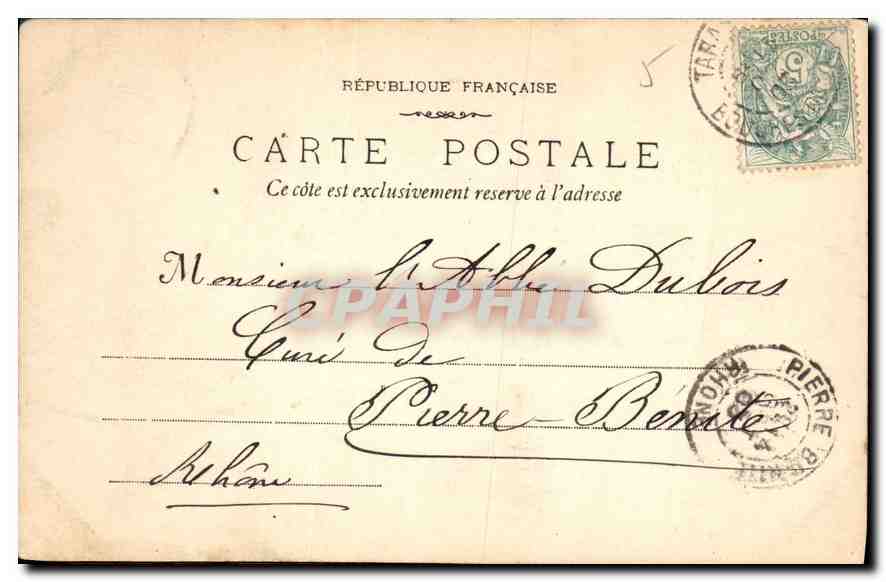 RÉPUBLIQUE FRANÇAISE
CARTE POSTALE
Ce côte est exclusivement reserve à l'adresse
Monsieur l'Abbé Dubois
Curé de
Pierre-Bénite
Rhône
CPAPHIL
5
POSTES
5
TARA
PIERRE BENITE
RHONE